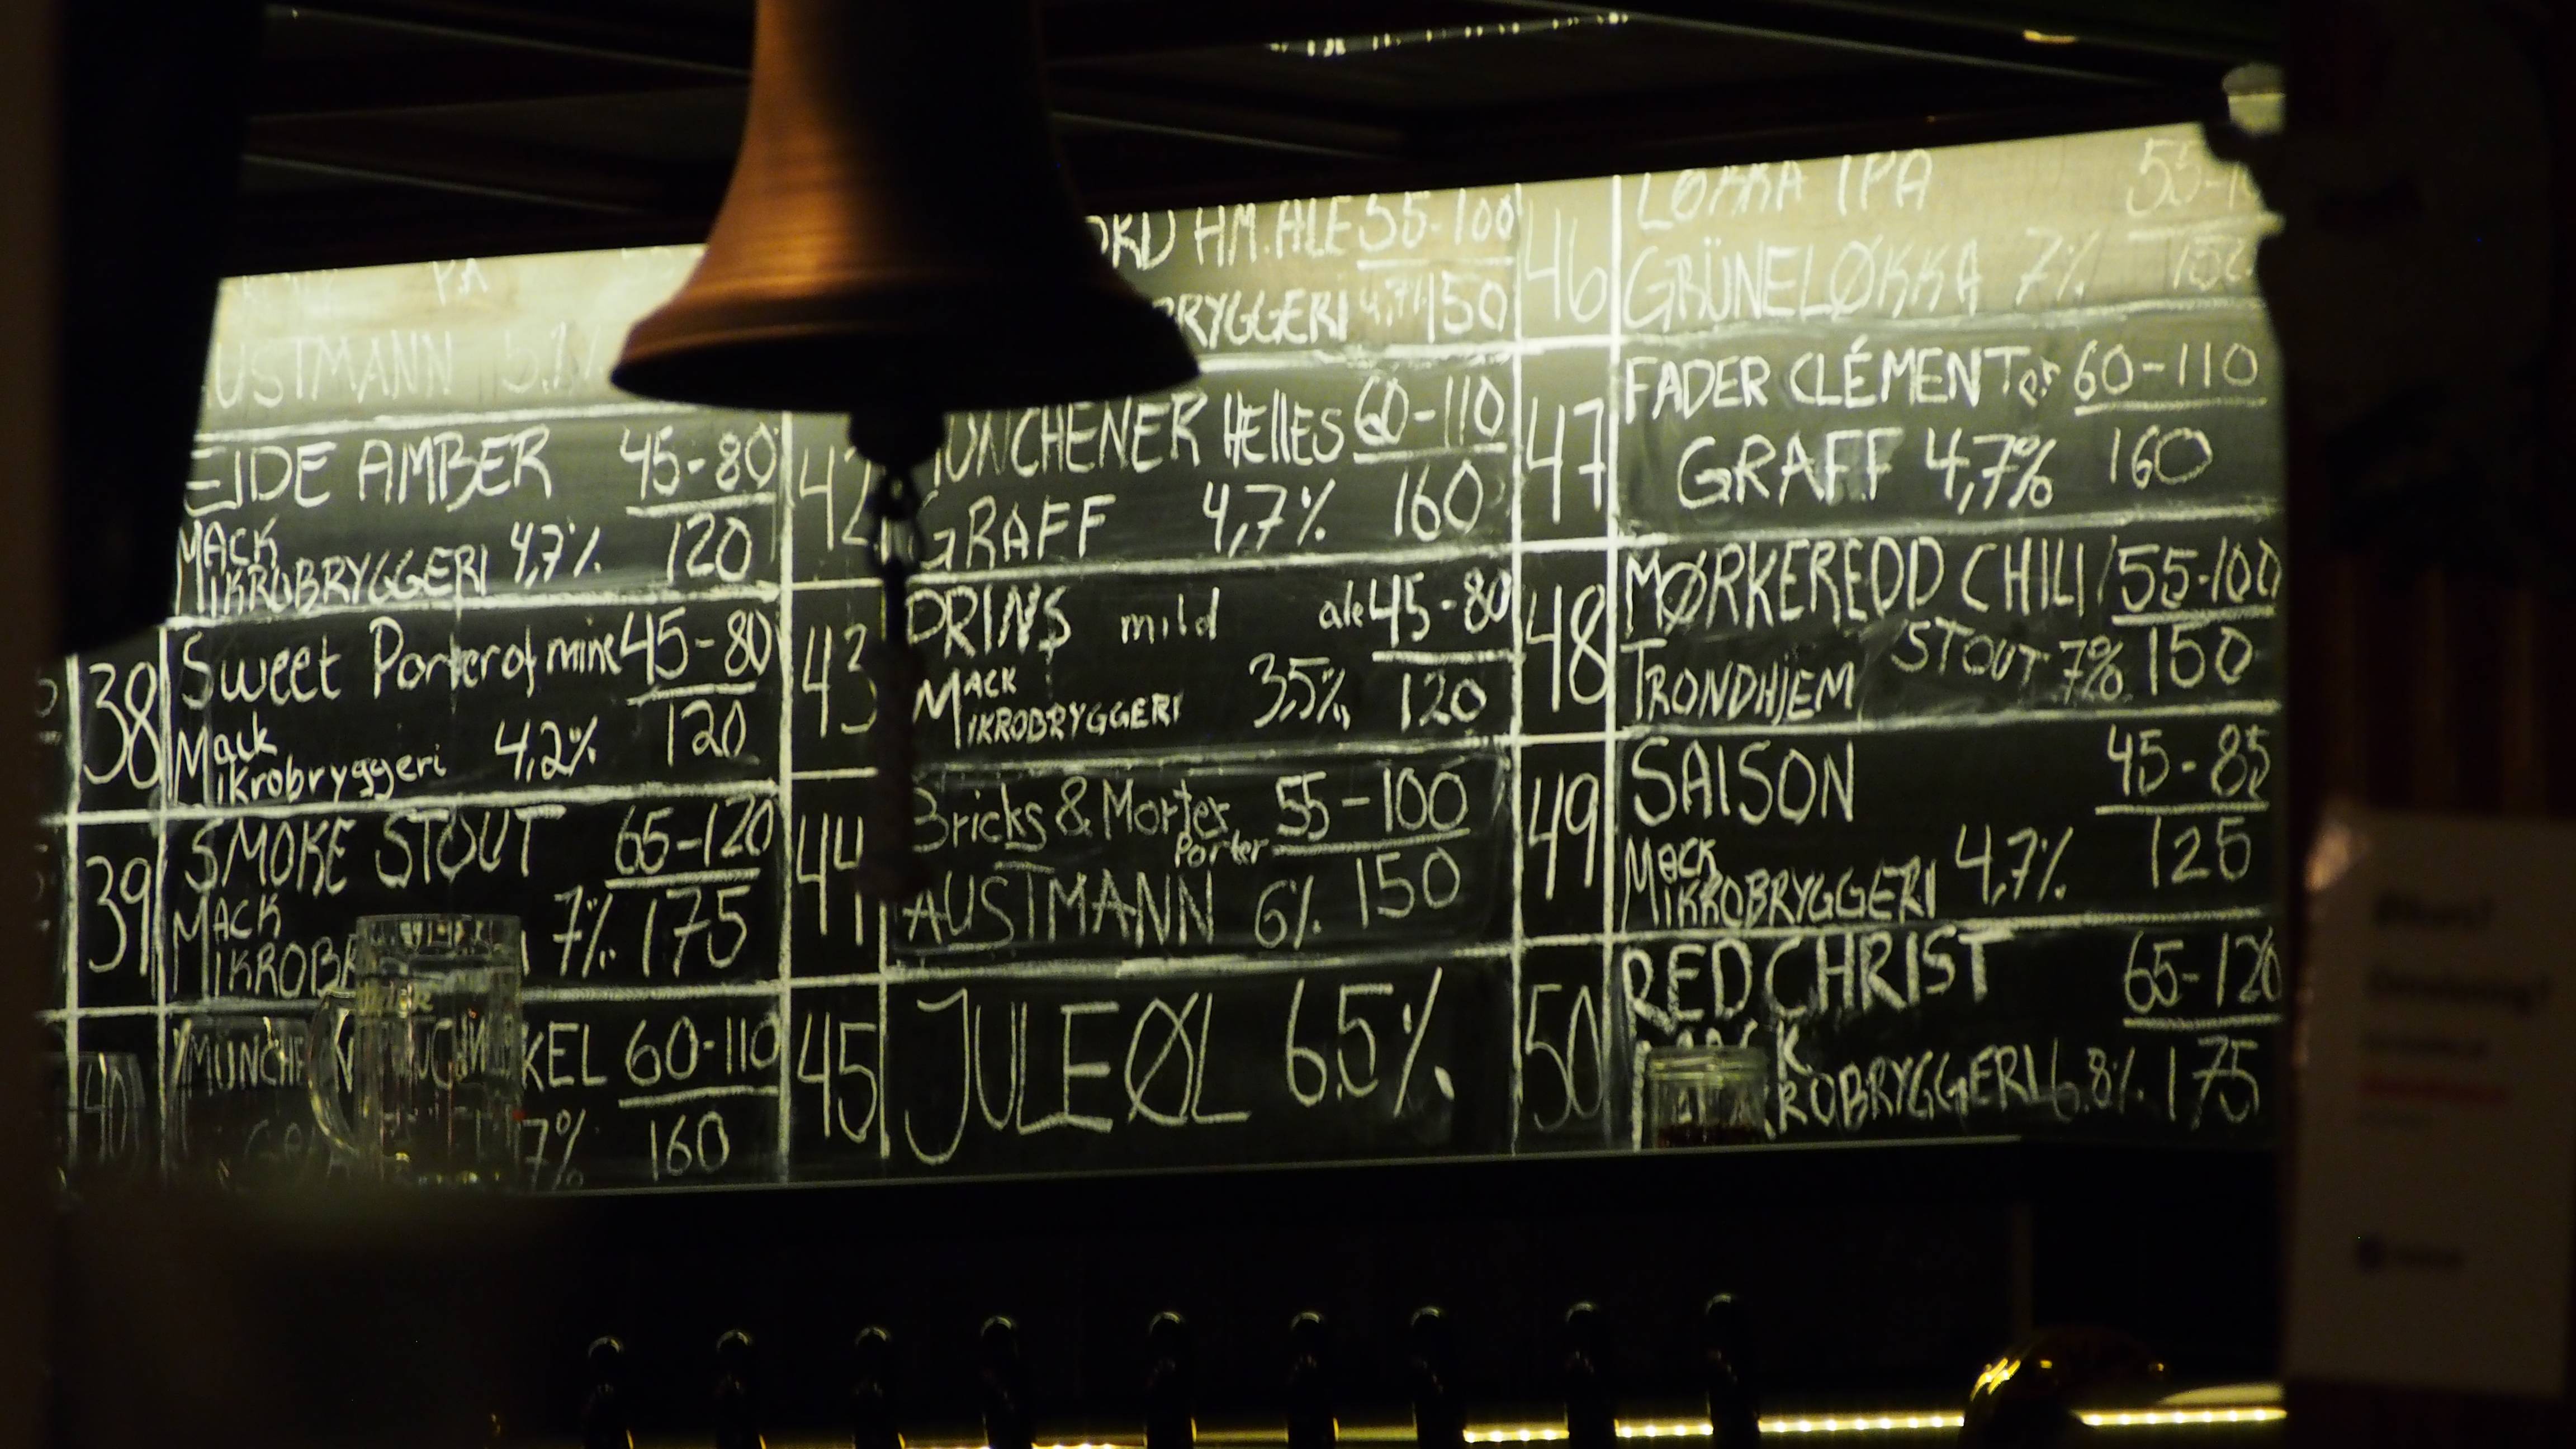 PA
AUSTMANN
EIDE AMBER 45-80
MACK
MIKROBRYGGERI 4,7% 120
38 Sweet Porter of mine 45-80
Mack
Mikrobryggeri 4,2% 120
39 SMOKE STOUT 65-120
MACK
7% 175
40 KEL 60-110
7% 160
HM. ALE 55-100
BRYGGERI 4,7% 150
42 MUNCHENER HELLES 60-110
GRAFF 4,7% 160
43 PRINS mild ale 45-80
MACK
MIKROBRYGGERI 3,5% 120
44 Bricks & Morter 55-100
Porter
AUSTMANN 6% 150
45 JULEØL 6.5%
46 LØKKA IPA
GRÜNELØKKA 7%
47 FADER CLÉMENTer 60-110
GRAFF 4,7% 160
48 MØRKEREDD CHILI 55-100
TRONDHJEM STOUT 7% 150
49 SAISON 45-85
Mack
MIKROBRYGGERI 4,7% 125
50 RED CHRIST 65-120
MACK
ROBRYGGERI 6.8% 175